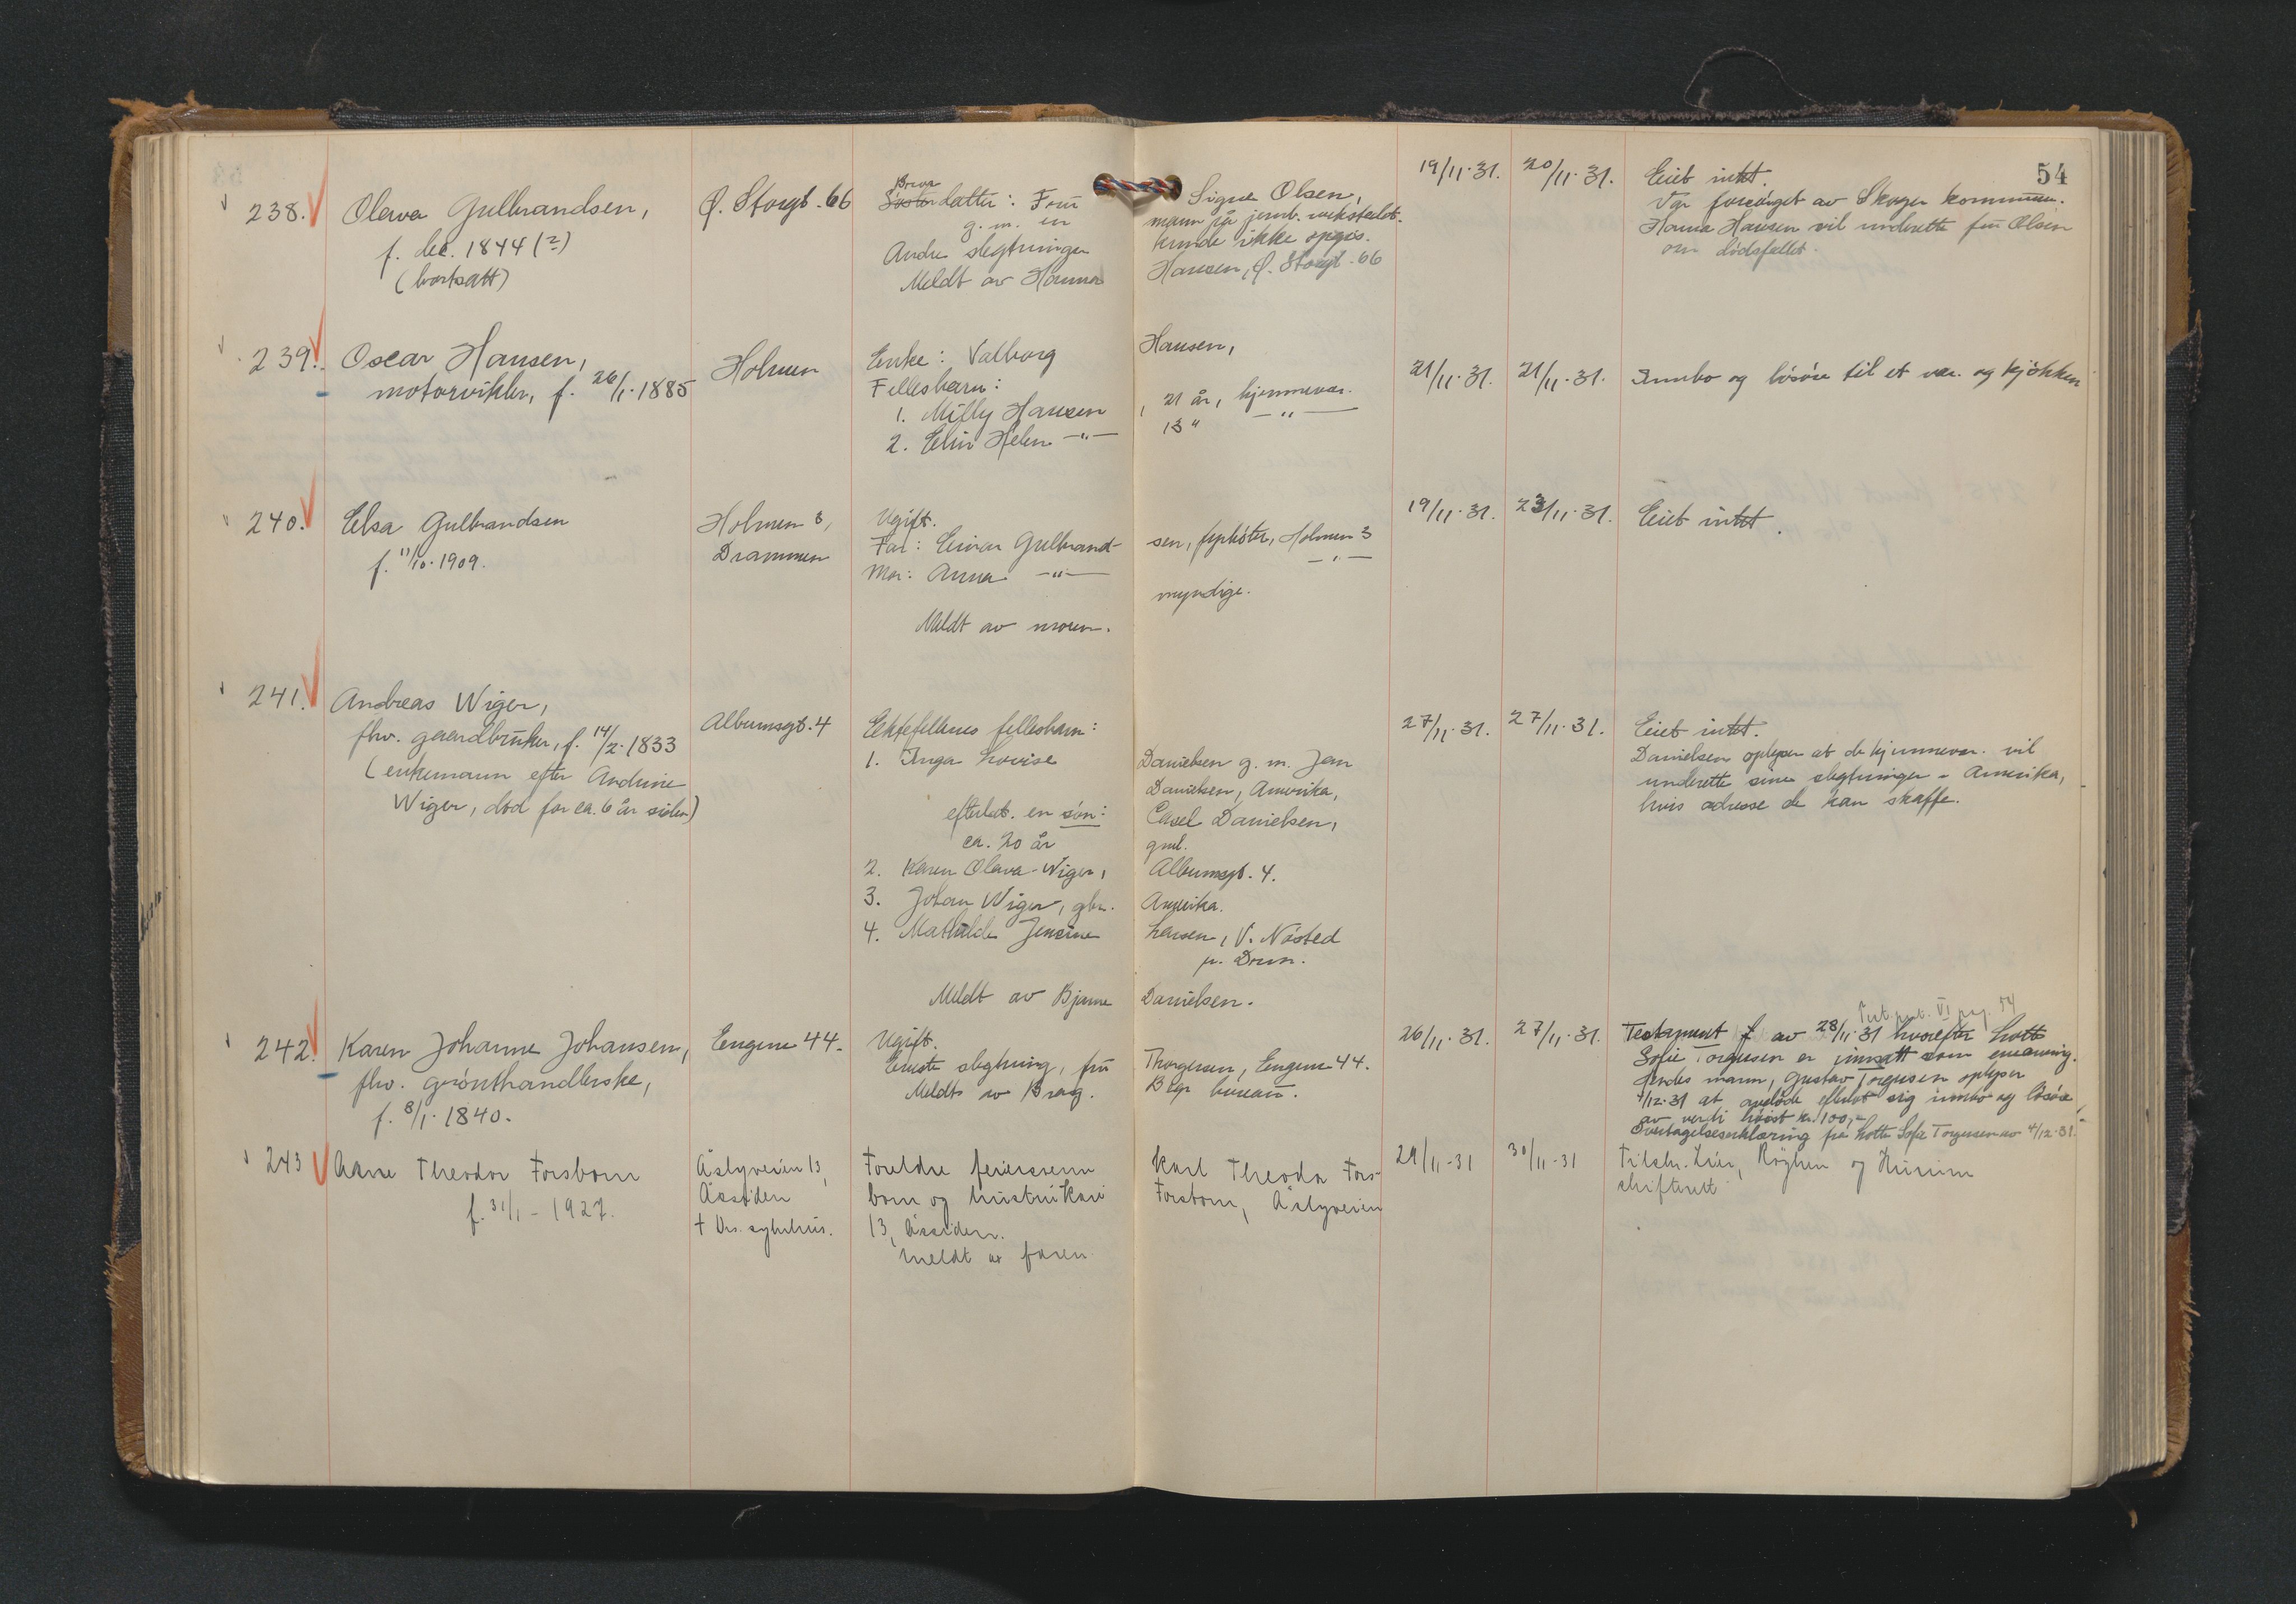 54
238. Olava Gulbrandsen,
f. dec. 1844 (?)
(bortsatt)
Ø. Storgt. 66
Bror
Søsterdatter: Fru Signe Olsen,
g. m. en mann på jernb. verkstedet.
Andre slegtninger kunde ikke opgis.
Meldt av Hanna Hansen, Ø. Storgt. 66
19/11.31. 20/11.31.
Eiet intet.
Var forsørget av Skoger kommune.
Hanna Hansen vil underrette fru Olsen
om dødsfallet.
239. Oscar Hansen,
motorvikler, f. 26/1.1885
Holmen
Enke: Valborg Hansen,
Fellesbarn:
1. Milly Hansen, 21 år, hjemmevær.
2. Elin Helen -"- 13 " -"-
21/11.31. 21/11.31.
Innbo og løsøre til et vær. og kjøkken
240. Elsa Gulbrandsen
f. 11/10.1909.
Holmen 3,
Drammen
Ugift.
Far: Einar Gulbrandsen, fyrbøter, Holmen 3
Mor: Anna -"- -"-
myndige.
Meldt av moren.
19/11.31. 23/11.31.
Eiet intet.
241. Andreas Wiger,
fhv. gaardbruker, f. 14/2.1833
(enkemann efter Andrine
Wiger, død for ca. 6 år siden)
Albumsgt. 4
Ektefellenes fellesbarn:
1. Inga Lovise Danielsen g. m. Jan
Danielsen, Amerika,
efterlot. en søn: Casel Danielsen,
ca. 20 år gml.
2. Karen Olava Wiger, Albumsgt. 4.
3. Johan Wiger, gbr. Amerika.
4. Mathilde Jensine Larsen, V. Nøsted
pr. Drm.
Meldt av Bjarne Danielsen.
27/11.31. 27/11.31.
Eiet intet.
Danielsen oplyser at de hjemmevær. vil
underrette sine slegtninger i Amerika,
hvis adresse de kan skaffe.
242. Karen Johanne Johansen,
fhv. grønthandlerske,
f. 8/1.1840.
Engene 44.
Ugift.
Eneste slegtning, fru Thorgersen, Engene 44.
Meldt av Brag. Begr. bureau.
26/11.31. 27/11.31.
Test.prot. VI pag. 54
Testament av 28/11.31 hvorefter Lotte
Sofie Torgersen er innsatt som enearving.
Hendes mann, Gustav Torgersen oplyser
4/12.31 at avdøde efterlot sig innbo og løsøre
av verdi høist kr. 100,-
Overtagelseserklæring fra Lotte Sofie Torgersen av 4/12.31.
243 Arne Theodor Forsbom
f. 31/1 - 1927.
Åslyveien 13,
Åssiden
† Dr. sykehus.
Foreldre feiersvenn Karl Theodor Forsbom og hustru Kari Forsbom, Åslyveien
13, Åssiden.
Meldt av faren
29/11-31 30/11-31
Tilstr. Lier, Røyken og Hurum
skifterett